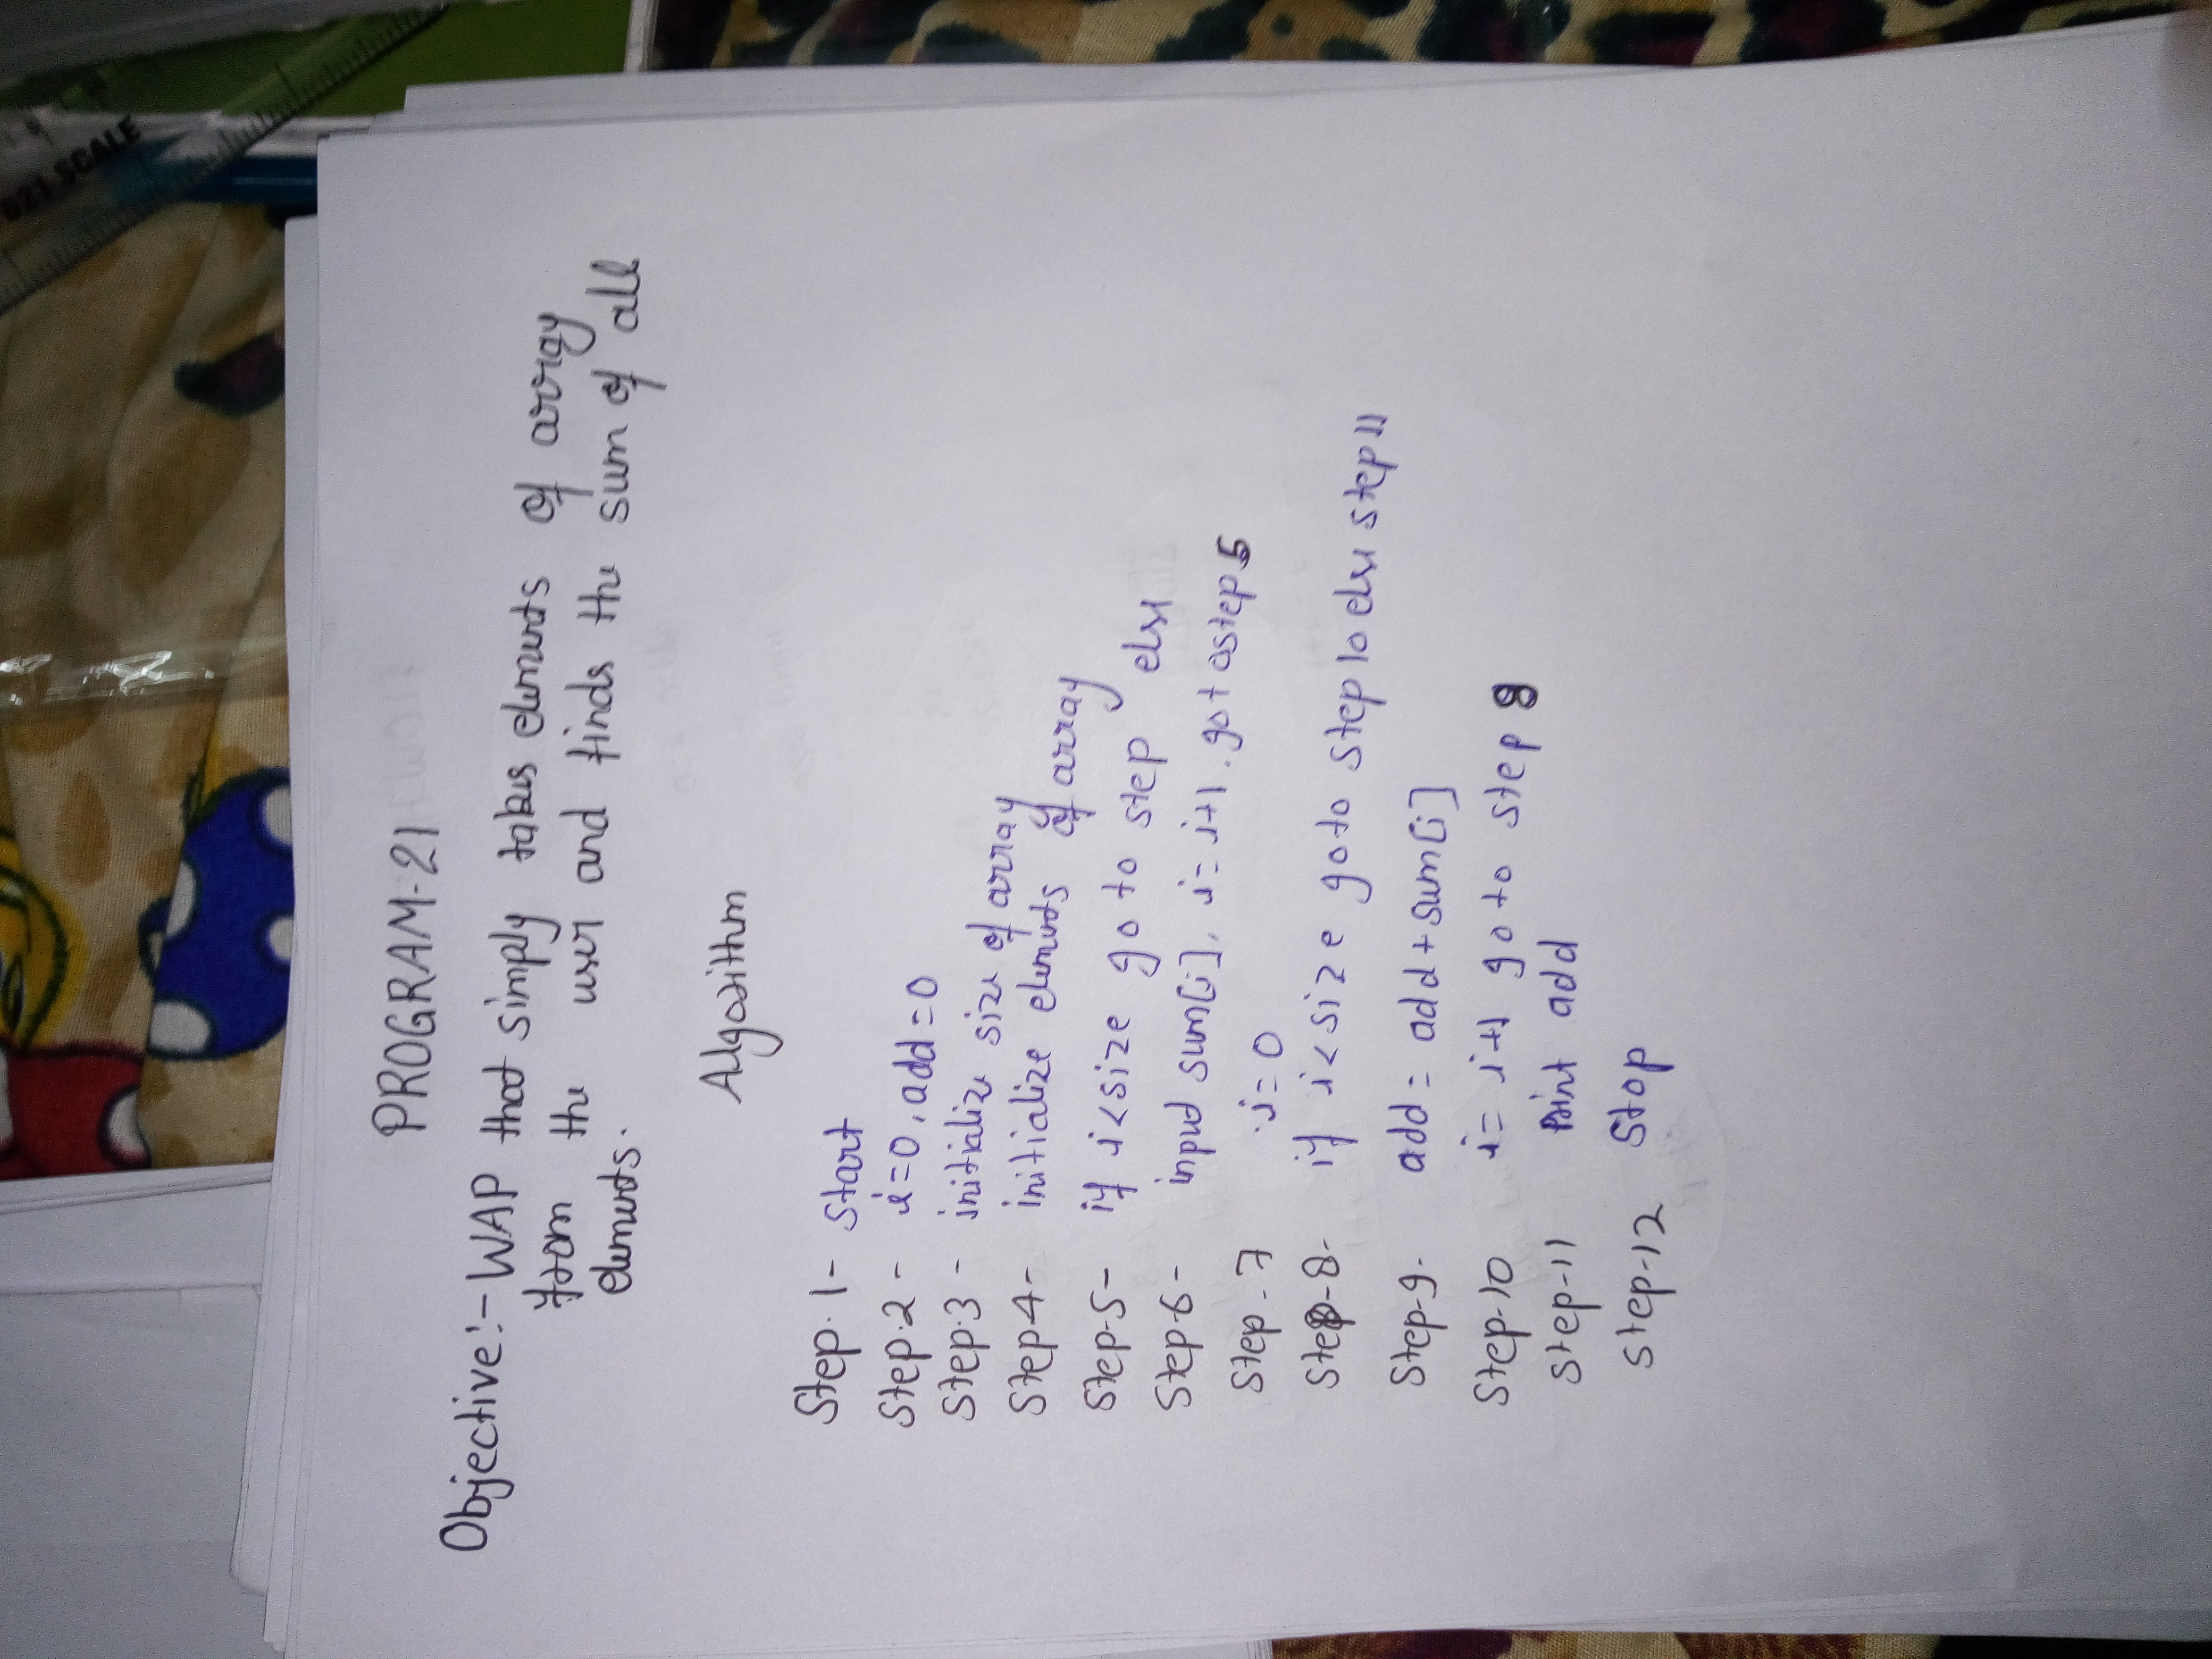 PROGRAM-21
Objective:- WAP that simply takes elements of array
from the user and finds the sum of all
elements.
Algorithm
Step.1- Start
Step.2- i=0, add=0
Step.3- initialize size of array
Step4- initialize elements of array
Step.5- if i<size go to step else
Step-6- input sum[i], i=i+1. got ostep5
Step-7 i=0
Step-8- if i<size goto step 10 else step 11
Step-9. add = add+sum[i]
Step-10 i=i+1 goto step 8
Step-11 Print add
Step-12 Stop
021 SCALE